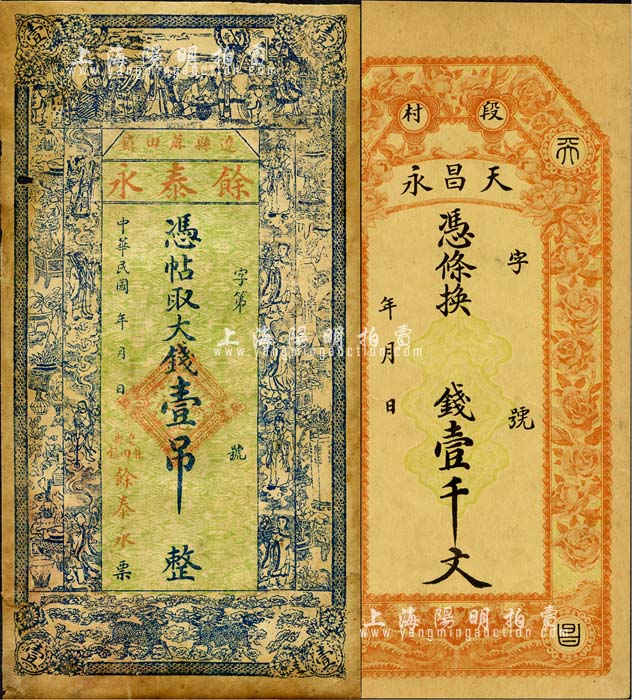 壹 壹
遼縣麻田鎮
餘泰永
字第 號
憑帖取大錢壹吊整
中華民國 年 月 日
餘泰永票
壹 壹
段村
天昌永
字 號
憑條換 錢壹千文
年 月 日
天
昌
上海陽明拍賣
上海陽明拍賣
www.yangmingauction.com
上海陽明拍賣
www.yangmingauction.com